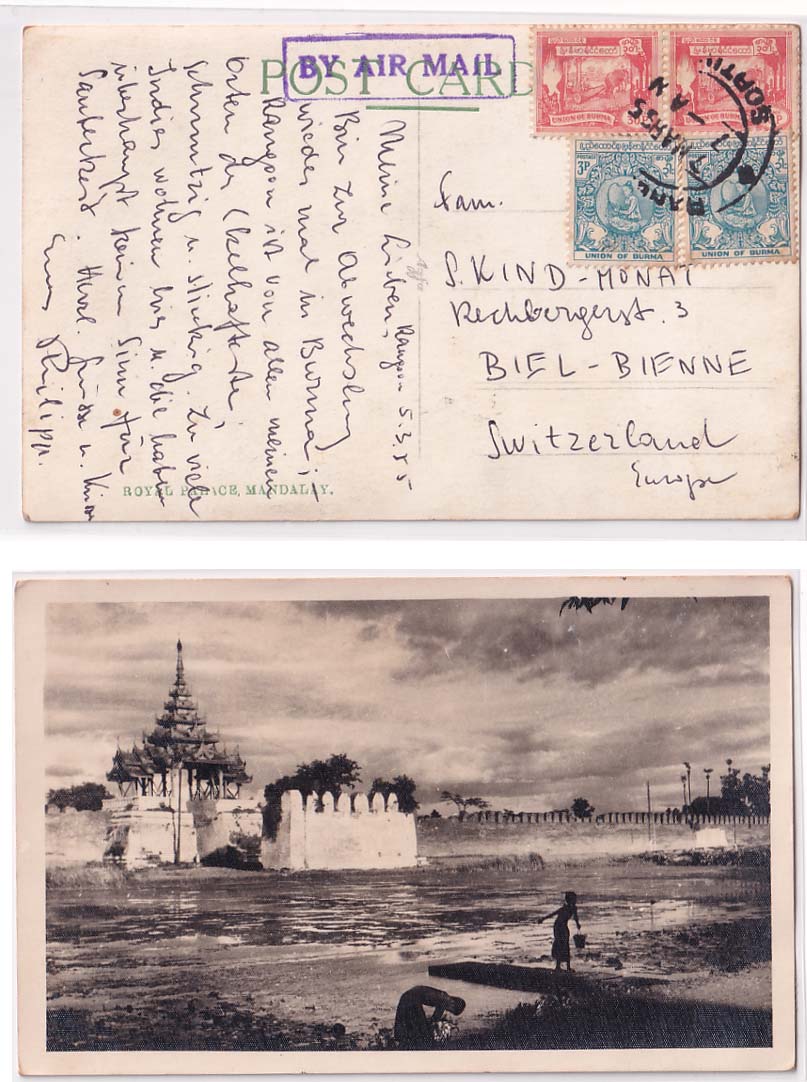 POST CARD
BY AIR MAIL
Rangoon 5.3.55
Meine Lieben,
Bin zur Abwechslung
wieder mal in Burma;
Rangoon ist von allen meinen
Orten der ekelhafteste.
Schmutzig u. stickig. Zu viele
Indier wohnen hier u. die haben
überhaupt keinen Sinn für
Sauberkeit. Herzl. Grüsse u. Küsse
Euer Philipp.
ROYAL PALACE, MANDALAY.
Fam.
S. KIND-MONAT
Rechbergerst. 3
BIEL-BIENNE
Switzerland
Europe
UNION OF BURMA
UNION OF BURMA
3P
UNION OF BURMA
UNION OF BURMA